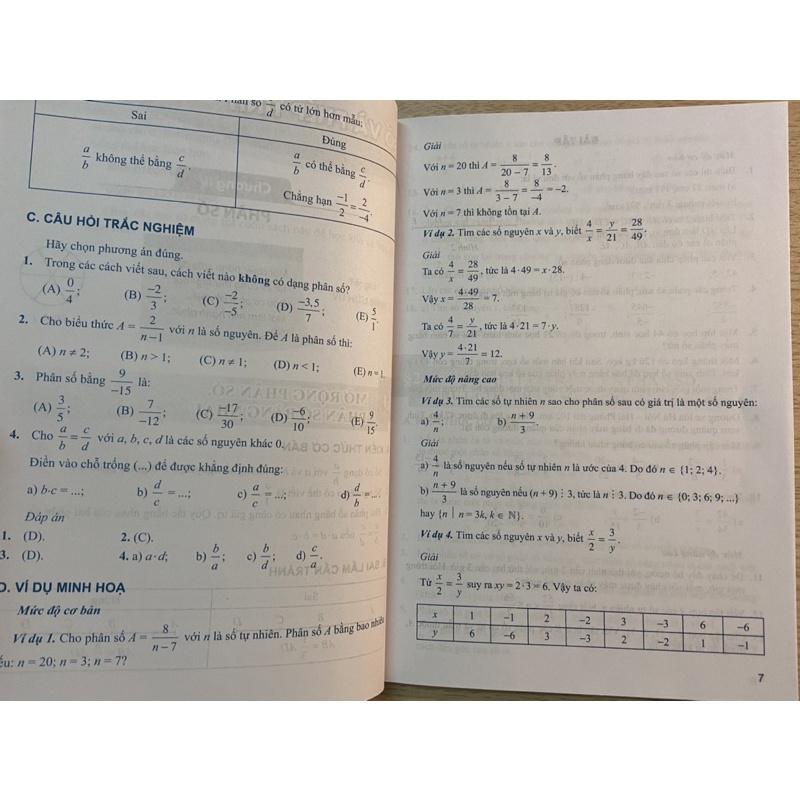 có tử lớn hơn mẫu;
Sai
Đúng
a/b không thể bằng c/d.
a/b có thể bằng c/d.
Chẳng hạn -1/2 = 2/-4.
C. CÂU HỎI TRẮC NGHIỆM
Hãy chọn phương án đúng.
1. Trong các cách viết sau, cách viết nào không có dạng phân số?
(A) 0/4; (B) -2/3; (C) -2/-5; (D) -3,5/7; (E) 5/1.
2. Cho biểu thức A = 2/(n-1) với n là số nguyên. Để A là phân số thì:
(A) n ≠ 2; (B) n > 1; (C) n ≠ 1; (D) n < 1; (E) n = 1.
3. Phân số bằng 9/-15 là:
(A) 3/5; (B) 7/-12; (C) -17/30; (D) -6/10; (E) 9/15.
4. Cho a/b = c/d với a, b, c, d là các số nguyên khác 0.
Điền vào chỗ trống (...) để được khẳng định đúng:
a) b·c = ...; b) d/c = ...; c) a/c = ...; d) d/b = ...
Đáp án
1. (D). 2. (C).
3. (D). 4. a) a·d; b) b/a; c) b/d; d) c/a.
D. VÍ DỤ MINH HOẠ
Mức độ cơ bản
Ví dụ 1. Cho phân số A = 8/(n-7) với n là số tự nhiên. Phân số A bằng bao nhiêu
nếu: n = 20; n = 3; n = 7?
Giải
Với n = 20 thì A = 8/(20 - 7) = 8/13.
Với n = 3 thì A = 8/(3 - 7) = 8/-4 = -2.
Với n = 7 thì không tồn tại A.
Ví dụ 2. Tìm các số nguyên x và y, biết 4/x = y/21 = 28/49.
Giải
Ta có 4/x = 28/49, tức là 4·49 = x·28.
Vậy x = 4·49/28 = 7.
Ta có 4/7 = y/21, tức là 4·21 = 7·y.
Vậy y = 4·21/7 = 12.
Mức độ nâng cao
Ví dụ 3. Tìm các số tự nhiên n sao cho phân số sau có giá trị là một số nguyên:
a) 4/n; b) (n + 9)/3.
Giải
a) 4/n là số nguyên nếu số tự nhiên n là ước của 4. Do đó n ∈ {1; 2; 4}.
b) (n + 9)/3 là số nguyên nếu (n + 9) ⋮ 3, tức là n ⋮ 3. Do đó n ∈ {0; 3; 6; 9; ...}
hay {n | n = 3k, k ∈ ℕ}.
Ví dụ 4. Tìm các số nguyên x và y, biết x/2 = 3/y.
Giải
Từ x/2 = 3/y suy ra xy = 2·3 = 6. Vậy ta có:
x 1 -1 2 -2 3 -3 6 -6
y 6 -6 3 -3 2 -2 1 -1
7